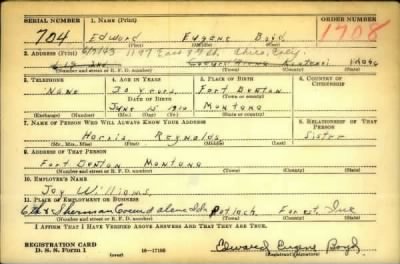 SERIAL NUMBER
1. NAME (Print)
ORDER NUMBER
704
Edward Eugene Boyd
1708
(First) (Middle) (Last)
2. ADDRESS (Print)
1197 East 9th Chico, Calif.
Idaho
(Number and street or R. F. D. number) (Town) (County) (State)
3. TELEPHONE
4. AGE IN YEARS
5. PLACE OF BIRTH
6. COUNTRY OF CITIZENSHIP
None
30 years
Fort Benton
DATE OF BIRTH
June 15 1910
Montana
(Exchange) (Number)
(Mo.) (Day) (Yr.)
(Town or county)
(State or country)
7. NAME OF PERSON WHO WILL ALWAYS KNOW YOUR ADDRESS
8. RELATIONSHIP OF THAT PERSON
Reynolds
Sister
(Mr., Mrs., Miss) (First) (Middle) (Last)
9. ADDRESS OF THAT PERSON
Fort Benton Montana
(Number and street or R. F. D. number) (Town) (County) (State)
10. EMPLOYER'S NAME
Joy Williams
11. PLACE OF EMPLOYMENT OR BUSINESS
6th & Sherman Coeur d alene Idh Potlach Forest Inc
(Number and street or R. F. D. number) (Town) (County) (State)
I AFFIRM THAT I HAVE VERIFIED ABOVE ANSWERS AND THAT THEY ARE TRUE.
REGISTRATION CARD
D. S. S. Form 1
(over)
16—17105
Edward Eugene Boyd
(Registrant's signature)